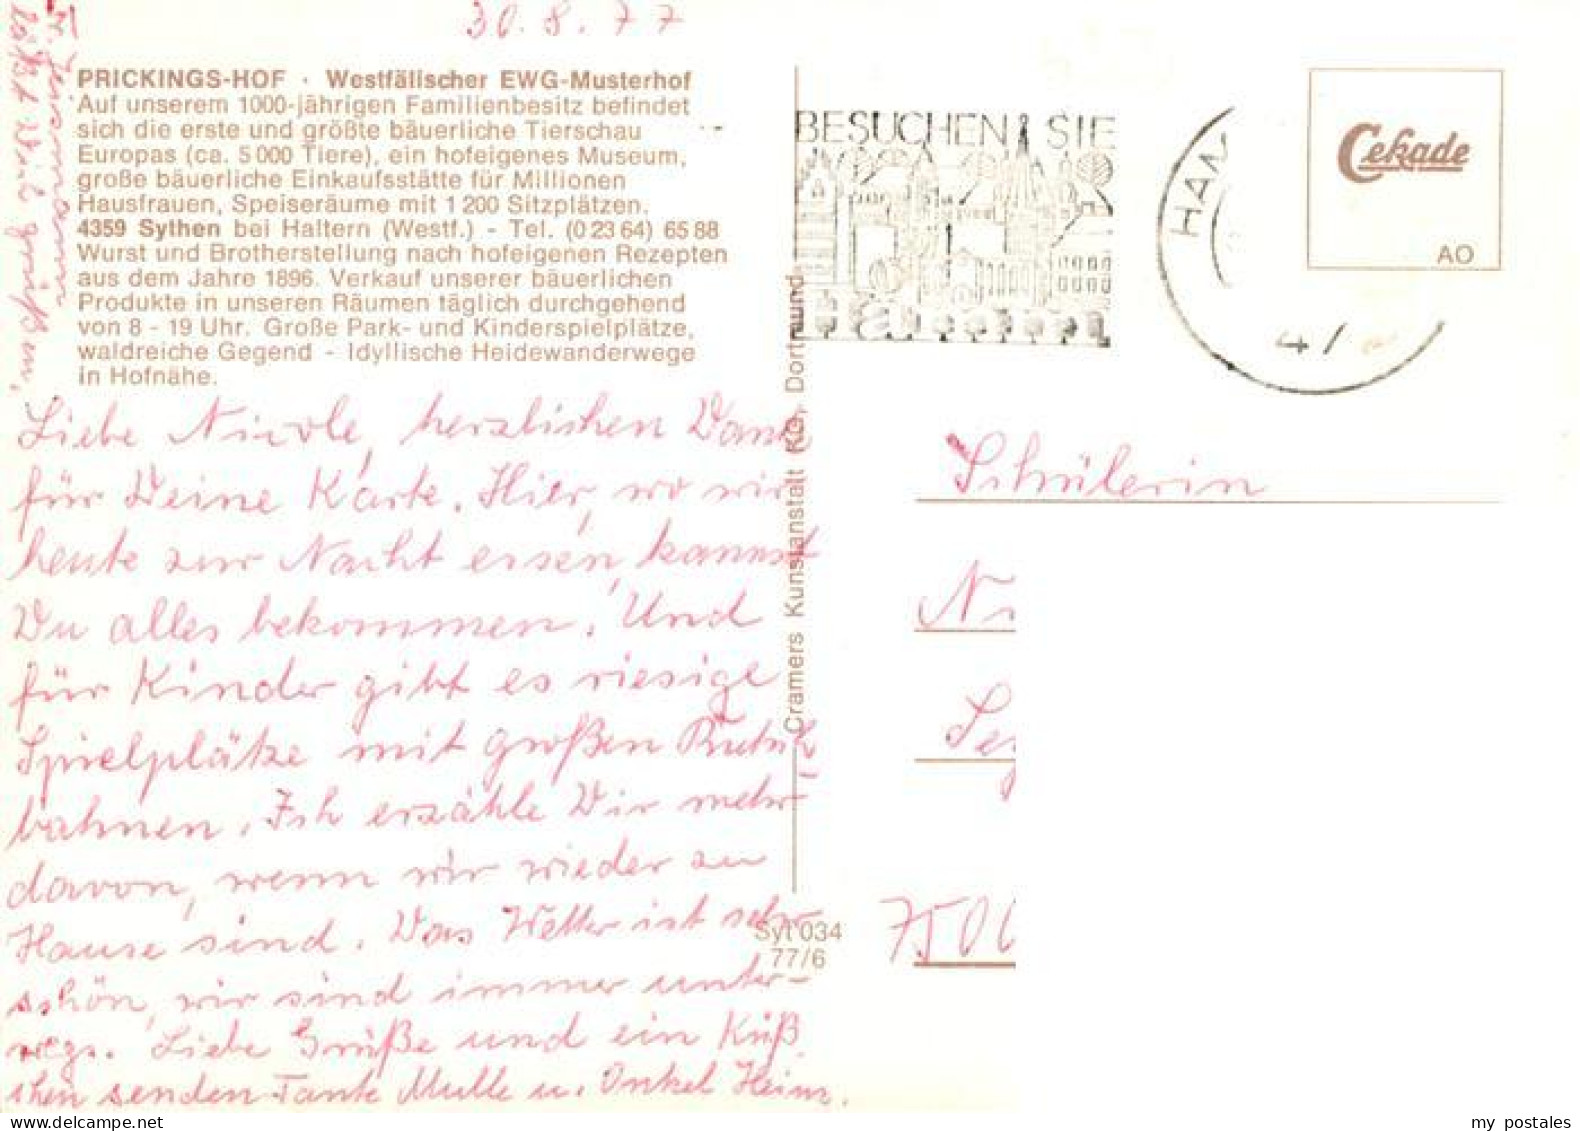 30.8.77
PRICKINGS-HOF · Westfälischer EWG-Musterhof
Auf unserem 1000-jährigen Familienbesitz befindet
sich die erste und größte bäuerliche Tierschau
Europas (ca. 5 000 Tiere), ein hofeigenes Museum,
große bäuerliche Einkaufsstätte für Millionen
Hausfrauen, Speiseräume mit 1 200 Sitzplätzen.
4359 Sythen bei Haltern (Westf.) - Tel. (0 23 64) 65 88
Wurst und Brotherstellung nach hofeigenen Rezepten
aus dem Jahre 1896. Verkauf unserer bäuerlichen
Produkte in unseren Räumen täglich durchgehend
von 8 - 19 Uhr. Große Park- und Kinderspielplätze,
waldreiche Gegend - Idyllische Heidewanderwege
in Hofnähe.
läßt Dich grüßen,
Liebe Nicole, herzlichen Dank
für Deine Karte. Hier, wo wir
heute zur Nacht essen, kannst
Du alles bekommen. Und
für Kinder gibt es riesige
Spielplätze mit großen Rutsch-
bahnen. Ich erzähle Dir mehr
davon, wenn wir wieder zu
Hause sind. Das Wetter ist sehr
schön, wir sind immer unter-
wegs. Liebe Grüße und ein Küß
chen senden Tante Mulle u. Onkel Heinz.
Cramers Kunstanstalt KG, Dortmund
Syt 034
77/6
BESUCHEN SIE
HAM
47
Cekade
AO
Schülerin
Ni
Se
7500
my postales